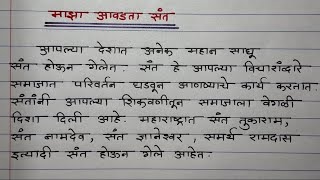 माझा आवडता संत
आपल्या देशात अनेक महान साधू
संत होऊन गेलेत. संत हे आपल्या विचारांद्वारे
समाजात परिवर्तन घडवून आणण्याचे कार्य करतात.
संतांनी आपल्या शिकवणीतून समाजाला वेगळी
दिशा दिली आहे. महाराष्ट्रात संत तुकाराम,
संत नामदेव, संत ज्ञानेश्वर, समर्थ रामदास
इत्यादी संत होऊन गेले आहेत.